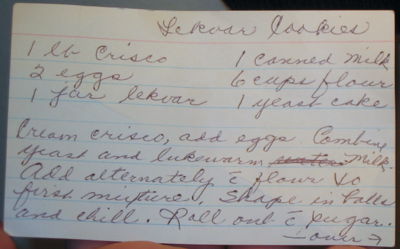 Lekvar Cookies
1 lb Crisco 1 canned milk
2 eggs 6 cups flour
1 jar lekvar 1 yeast cake
Cream crisco, add eggs. Combine
yeast and lukewarm milk.
Add alternately c̄ flour to
first mixture. Shape in balls
and chill. Roll out c̄ sugar.
over →